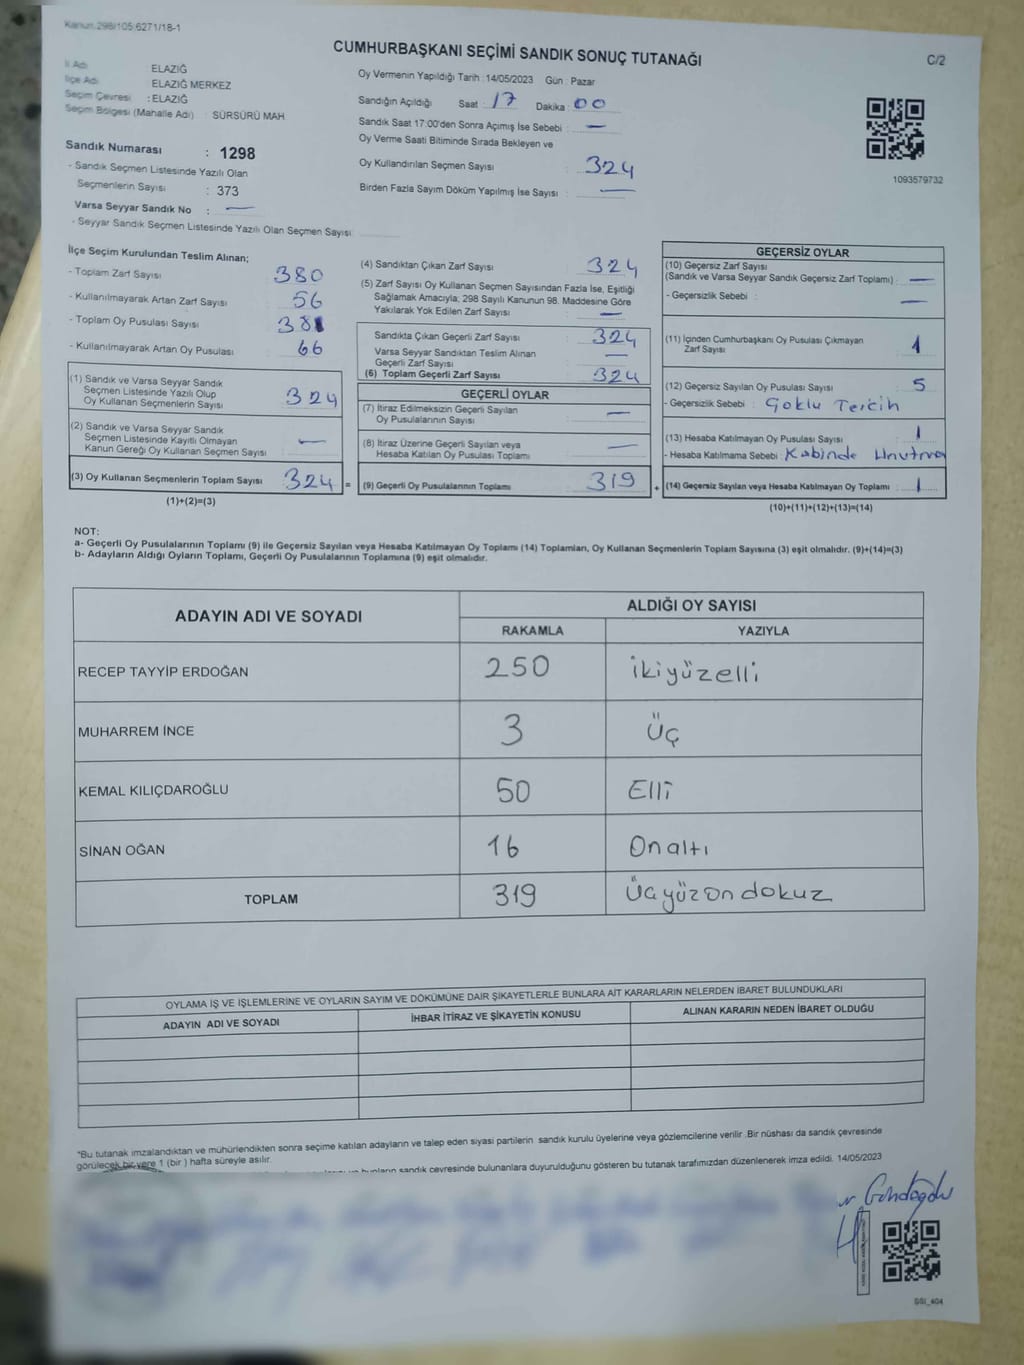 Kanun.298/105,6271/18-1
CUMHURBAŞKANI SEÇİMİ SANDIK SONUÇ TUTANAĞI
C/2
İl Adı : ELAZIĞ
İlçe Adı : ELAZIĞ MERKEZ
Seçim Çevresi : ELAZIĞ
Seçim Bölgesi (Mahalle Adı) : SÜRSÜRÜ MAH
Sandık Numarası : 1298
- Sandık Seçmen Listesinde Yazılı Olan
Seçmenlerin Sayısı : 373
Varsa Seyyar Sandık No : —
- Seyyar Sandık Seçmen Listesinde Yazılı Olan Seçmen Sayısı:
Oy Vermenin Yapıldığı Tarih : 14/05/2023 Gün : Pazar
Sandığın Açıldığı Saat : 17 Dakika : 00
Sandık Saat 17:00'den Sonra Açımış İse Sebebi : —
Oy Verme Saati Bitiminde Sırada Bekleyen ve
Oy Kullandırılan Seçmen Sayısı : 324
Birden Fazla Sayım Döküm Yapılmış İse Sayısı : —
1093579732
İlçe Seçim Kurulundan Teslim Alınan;
- Toplam Zarf Sayısı 380
- Kullanılmayarak Artan Zarf Sayısı 56
- Toplam Oy Pusulası Sayısı 381
- Kullanılmayarak Artan Oy Pusulası 66
(1) Sandık ve Varsa Seyyar Sandık
Seçmen Listesinde Yazılı Olup
Oy Kullanan Seçmenlerin Sayısı : 324
(2) Sandık ve Varsa Seyyar Sandık
Seçmen Listesinde Kayıtlı Olmayan
Kanun Gereği Oy Kullanan Seçmen Sayısı : —
(3) Oy Kullanan Seçmenlerin Toplam Sayısı : 324 =
(1)+(2)=(3)
(4) Sandıktan Çıkan Zarf Sayısı : 324
(5) Zarf Sayısı Oy Kullanan Seçmen Sayısından Fazla İse, Eşitliği
Sağlamak Amacıyla; 298 Sayılı Kanunun 98. Maddesine Göre
Yakılarak Yok Edilen Zarf Sayısı : —
Sandıkta Çıkan Geçerli Zarf Sayısı : 324
Varsa Seyyar Sandıktan Teslim Alınan
Geçerli Zarf Sayısı : —
(6) Toplam Geçerli Zarf Sayısı : 324
GEÇERLİ OYLAR
(7) İtiraz Edilmeksizin Geçerli Sayılan
Oy Pusulalarının Sayısı : —
(8) İtiraz Üzerine Geçerli Sayılan veya
Hesaba Katılan Oy Pusulası Toplamı : —
(9) Geçerli Oy Pusulalarının Toplamı : 319 +
GEÇERSİZ OYLAR
(10) Geçersiz Zarf Sayısı
(Sandık ve Varsa Seyyar Sandık Geçersiz Zarf Toplamı) : —
- Geçersizlik Sebebi : —
(11) İçinden Cumhurbaşkanı Oy Pusulası Çıkmayan
Zarf Sayısı : 1
(12) Geçersiz Sayılan Oy Pusulası Sayısı : 5
- Geçersizlik Sebebi : Çoklu Tercih
(13) Hesaba Katılmayan Oy Pusulası Sayısı : 1
- Hesaba Katılmama Sebebi : Kabinde Unutma
(14) Geçersiz Sayılan veya Hesaba Katılmayan Oy Toplamı : 1
(10)+(11)+(12)+(13)=(14)
NOT:
a- Geçerli Oy Pusulalarının Toplamı (9) ile Geçersiz Sayılan veya Hesaba Katılmayan Oy Toplamı (14) Toplamları, Oy Kullanan Seçmenlerin Toplam Sayısına (3) eşit olmalıdır. (9)+(14)=(3)
b- Adayların Aldığı Oyların Toplamı, Geçerli Oy Pusulalarının Toplamına (9) eşit olmalıdır.
ADAYIN ADI VE SOYADI
ALDIĞI OY SAYISI
RAKAMLA YAZIYLA
RECEP TAYYİP ERDOĞAN 250 ikiyüzelli
MUHARREM İNCE 3 üç
KEMAL KILIÇDAROĞLU 50 Elli
SİNAN OĞAN 16 Onaltı
TOPLAM 319 Üçyüzondokuz
OYLAMA İŞ VE İŞLEMLERİNE VE OYLARIN SAYIM VE DÖKÜMÜNE DAİR ŞİKAYETLERLE BUNLARA AİT KARARLARIN NELERDEN İBARET BULUNDUKLARI
ADAYIN ADI VE SOYADI İHBAR İTİRAZ VE ŞİKAYETİN KONUSU ALINAN KARARIN NEDEN İBARET OLDUĞU
*Bu tutanak imzalandıktan ve mühürlendikten sonra seçime katılan adayların ve talep eden siyasi partilerin sandık kurulu üyelerine veya gözlemcilerine verilir .Bir nüshası da sandık çevresinde
görülecek bir yere 1 (bir ) hafta süreyle asılır.
bunların sandık çevresinde bulunanlara duyurulduğunu gösteren bu tutanak tarafımızdan düzenlenerek imza edildi. 14/05/2023